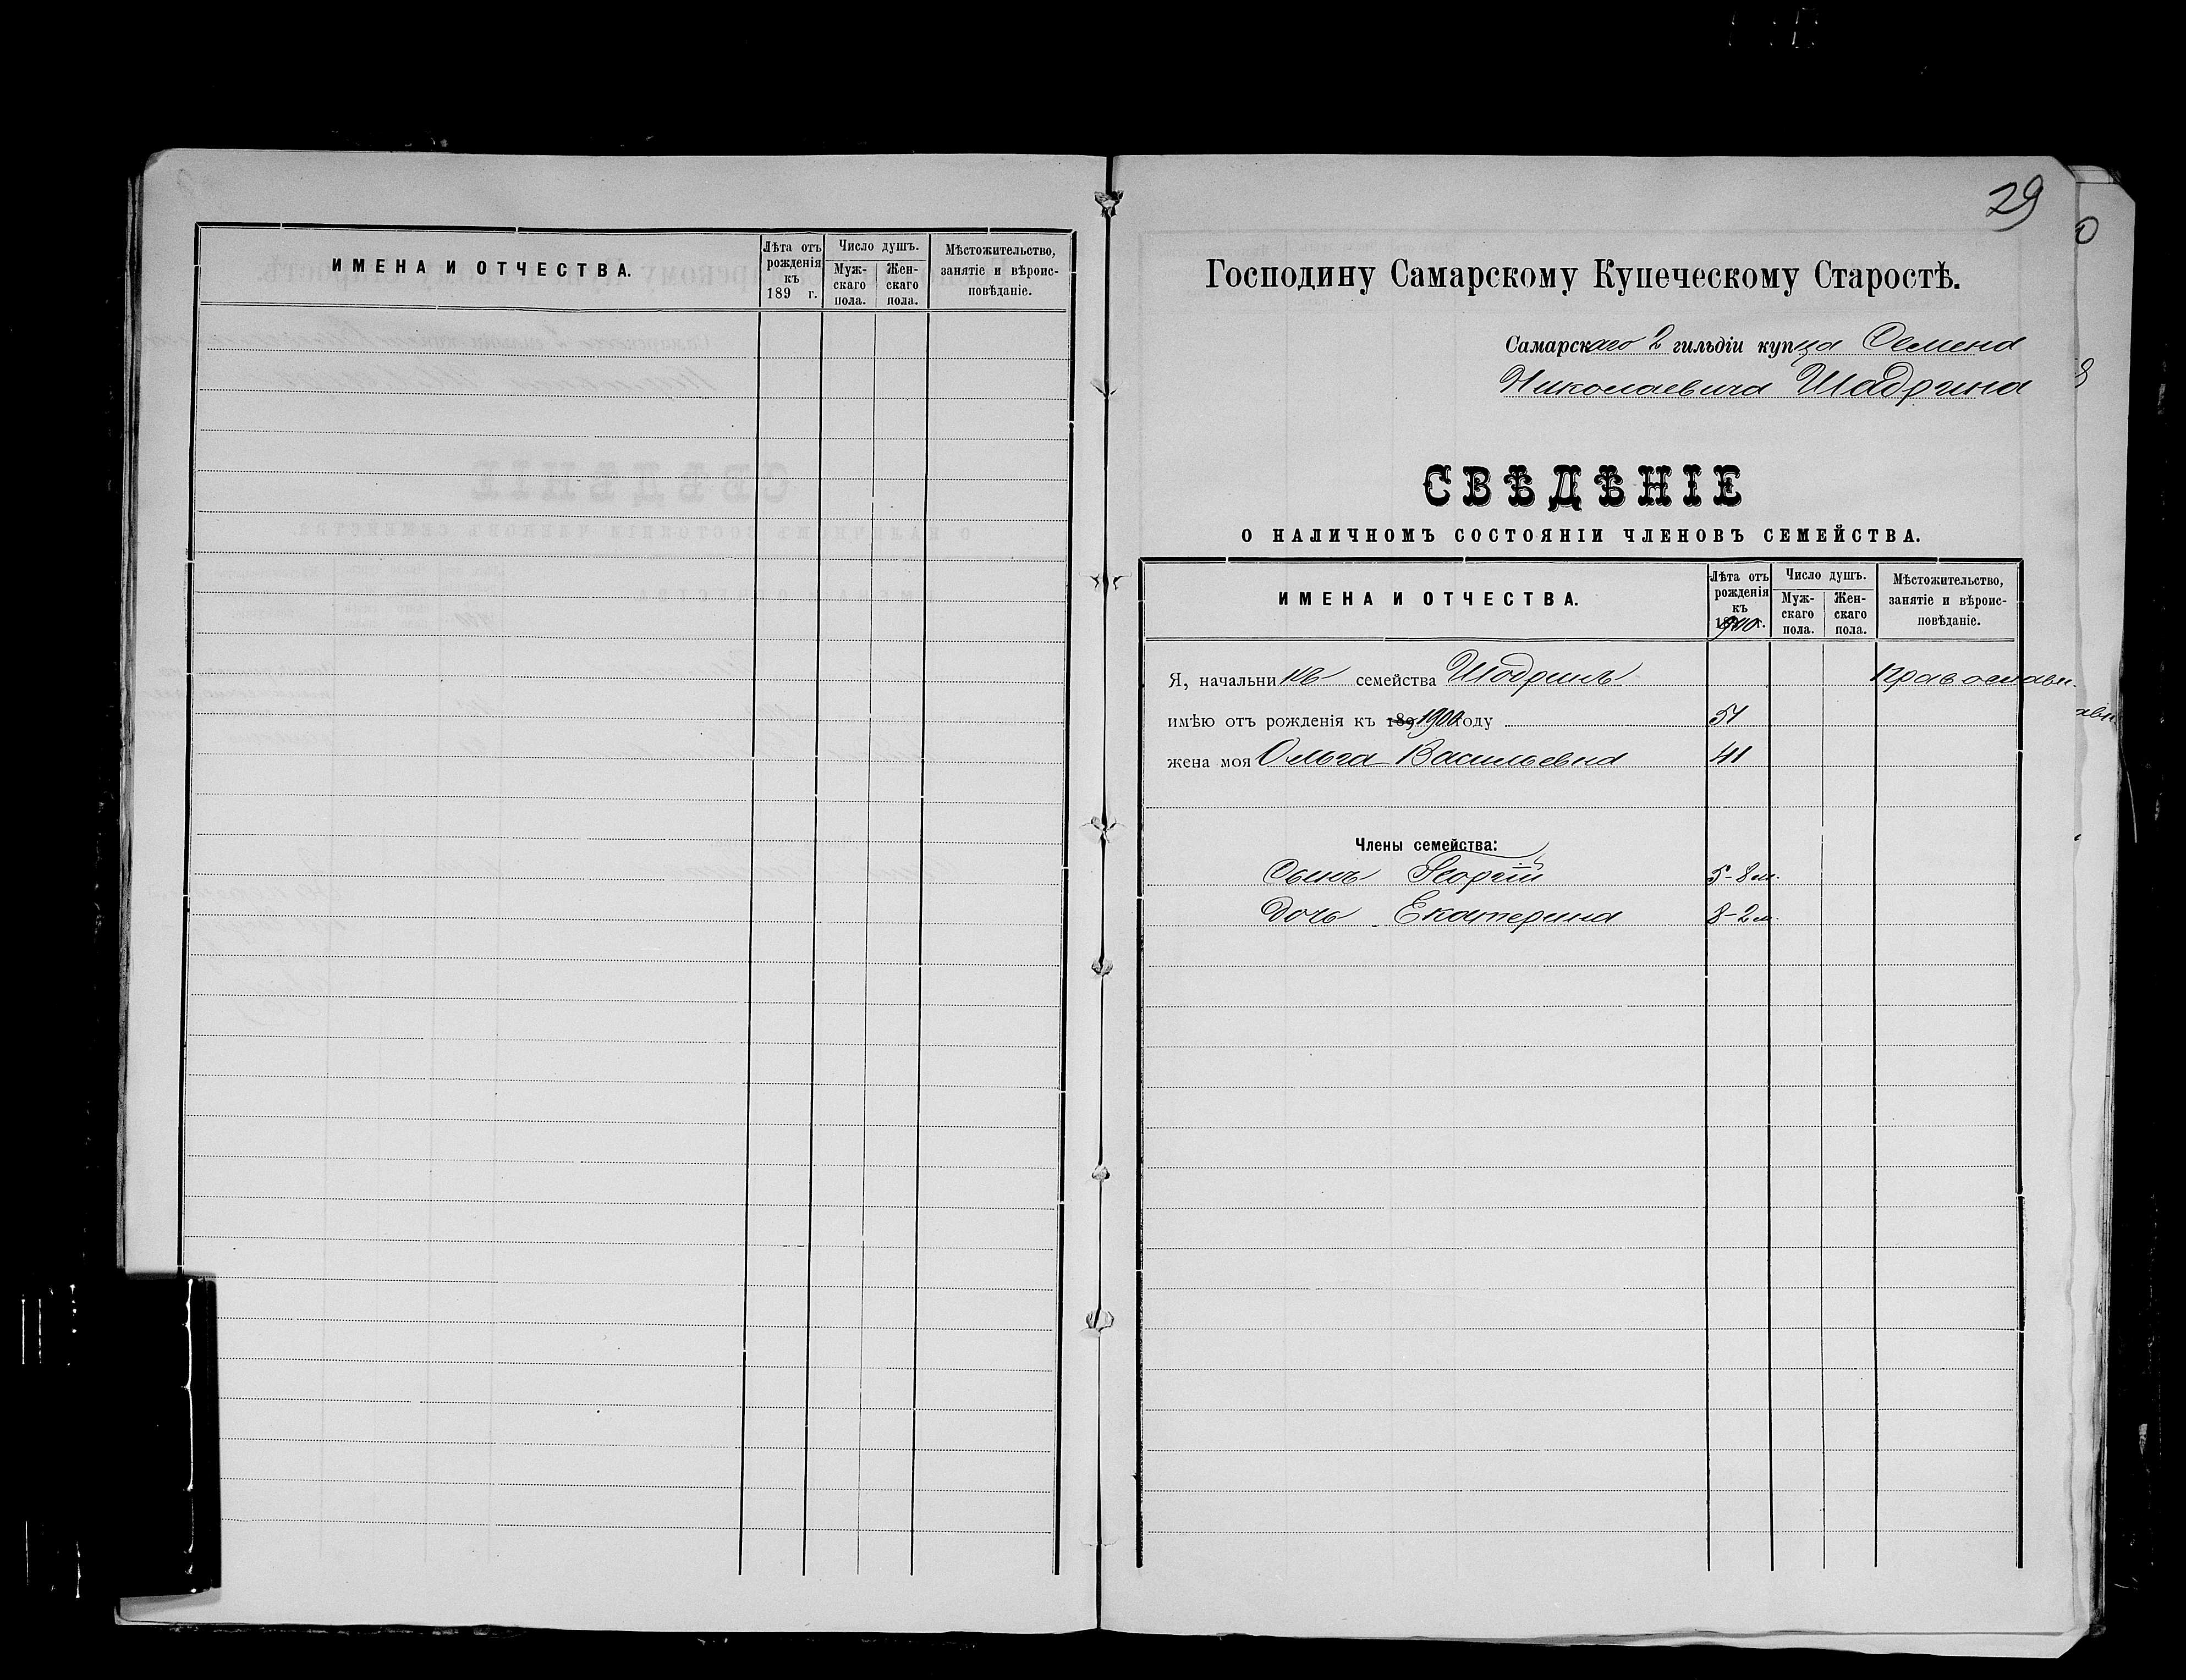 ИМЕНА И ОТЧЕСТВА.
Лѣта отъ рожденія къ 189 г.
Число душъ.
Муж-скаго пола.
Жен-скаго пола.
Мѣстожительство, занятіе и вѣроис-повѣданіе.
29
Господину Самарскому Купеческому Старостѣ.
Самарскаго 2 гильдіи купца Семена
Николаевича Шадрина
СВѢДѢНІЕ
О НАЛИЧНОМЪ СОСТОЯНІИ ЧЛЕНОВЪ СЕМЕЙСТВА.
ИМЕНА И ОТЧЕСТВА.
Лѣта отъ рожденія къ 1900 г.
Число душъ.
Муж-скаго пола.
Жен-скаго пола.
Мѣстожительство, занятіе и вѣроис-повѣданіе.
Я, начальникъ семейства Шадринъ Православн.
имѣю отъ рожденія къ 189 1900 году 51
жена моя Ольга Васильевна 41
Члены семейства:
Сынъ Георгій 5-8 м.
Дочь Екатерина 8-2 м.